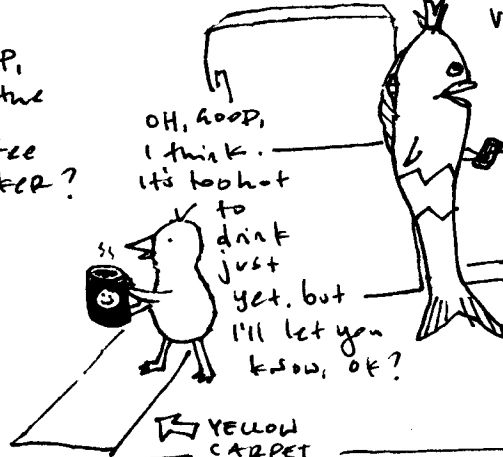 P,
OH, GOOD,
I think.
It's too hot
to
drink
just
yet. but
I'll let you
know, OK?
YELLOW
CARPET